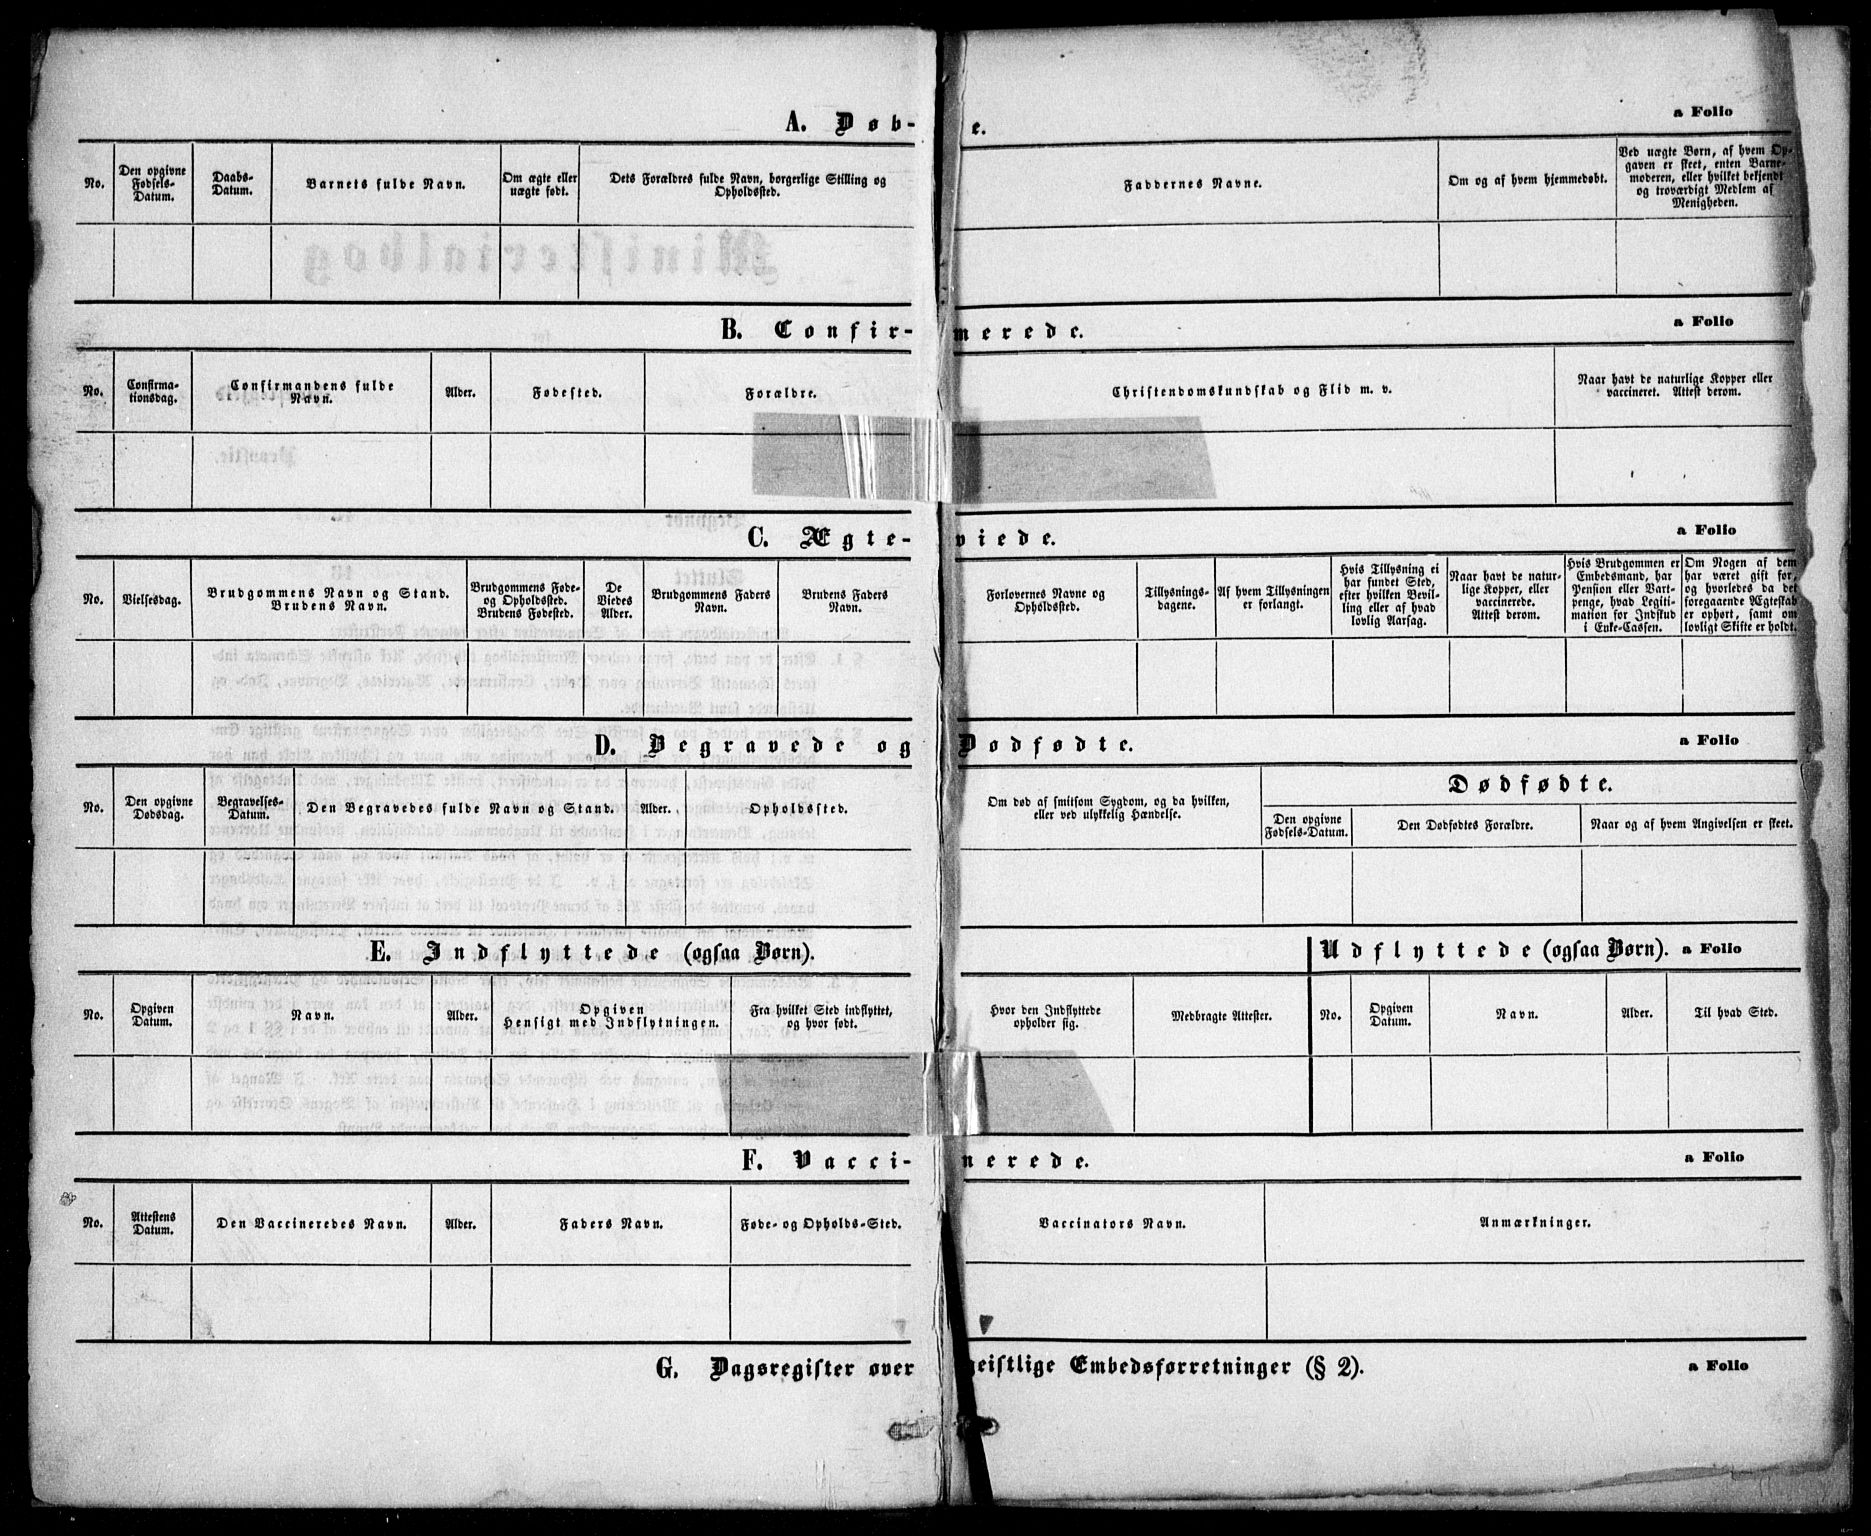 A. Døb- e. a Folio
No.
Den opgivne Fødsels-Datum.
Daabs-Datum.
Barnets fulde Navn.
Om ægte eller uægte født.
Dets Forældres fulde Navn, borgerlige Stilling og Opholdssted.
Faddernes Navne.
Om og af hvem hjemmedøbt.
Ved uægte Børn, af hvem Op-
gaven er skeet, enten Barne-
moderen, eller hvilket bekjendt
og troværdigt Medlem af
Menigheden.
B. Confir- merede. a Folio
No.
Confirma-
tionsdag.
Confirmandens fulde
Navn.
Alder.
Fødested.
Forældre.
Christendomskundskab og Flid m. v.
Naar havt de naturlige Kopper eller
vaccineret. Attest derom.
C. Ægte- viede. a Folio
No.
Vielsesdag.
Brudgommens Navn og Stand.
Brudens Navn.
Brudgommens Føde-
og Opholdssted.
Brudens Fødested.
De
Viedes
Alder.
Brudgommens Faders
Navn.
Brudens Faders
Navn.
Forlovernes Navne og
Opholdssted.
Tillysnings-
dagene.
Af hvem Tillysningen
er forlangt.
Hvis Tillysning ei
har fundet Sted,
efter hvilken Bevil-
ling eller af hvad
lovlig Aarsag.
Naar havt de natur-
lige Kopper, eller
vaccinerede.
Attest derom.
Hvis Brudgommen er
Embedsmand, har
Pension eller Vart-
penge, hvad Legiti-
mation for Indskud
i Enke-Cassen.
Om Nogen af dem
har været gift før,
og hvorledes da det
foregaaende Ægteskab
er ophørt, samt om
lovligt Skifte er holdt.
D. Begravede og Dødfødte. a Folio
No.
Den opgivne
Dødsdag.
Begravelses-
Datum.
Den Begravedes fulde Navn og Stand.
Alder.
Opholdssted.
Om død af smitsom Sygdom, og da hvilken,
eller ved ulykkelig Hændelse.
Dødfødte.
Den opgivne
Fødsels-Datum.
Den Dødfødtes Forældre.
Naar og af hvem Angivelsen er skeet.
E. Indflyttede (ogsaa Børn). Udflyttede (ogsaa Børn). a Folio
No.
Opgiven
Datum.
Navn.
Alder.
Opgiven
Hensigt med Indflytningen.
Fra hvilket Sted indflyttet,
og hvor født.
Hvor den Indflyttede
opholder sig.
Medbragte Attester.
No.
Opgiven
Datum.
Navn.
Alder.
Til hvad Sted.
F. Vacci- nerede. a Folio
No.
Attestens
Datum.
Den Vaccineredes Navn.
Alder.
Faders Navn.
Føde- og Opholds-Sted.
Vaccinators Navn.
Anmærkninger.
G. Dagsregister over geistlige Embedsforretninger (§ 2). a Folio